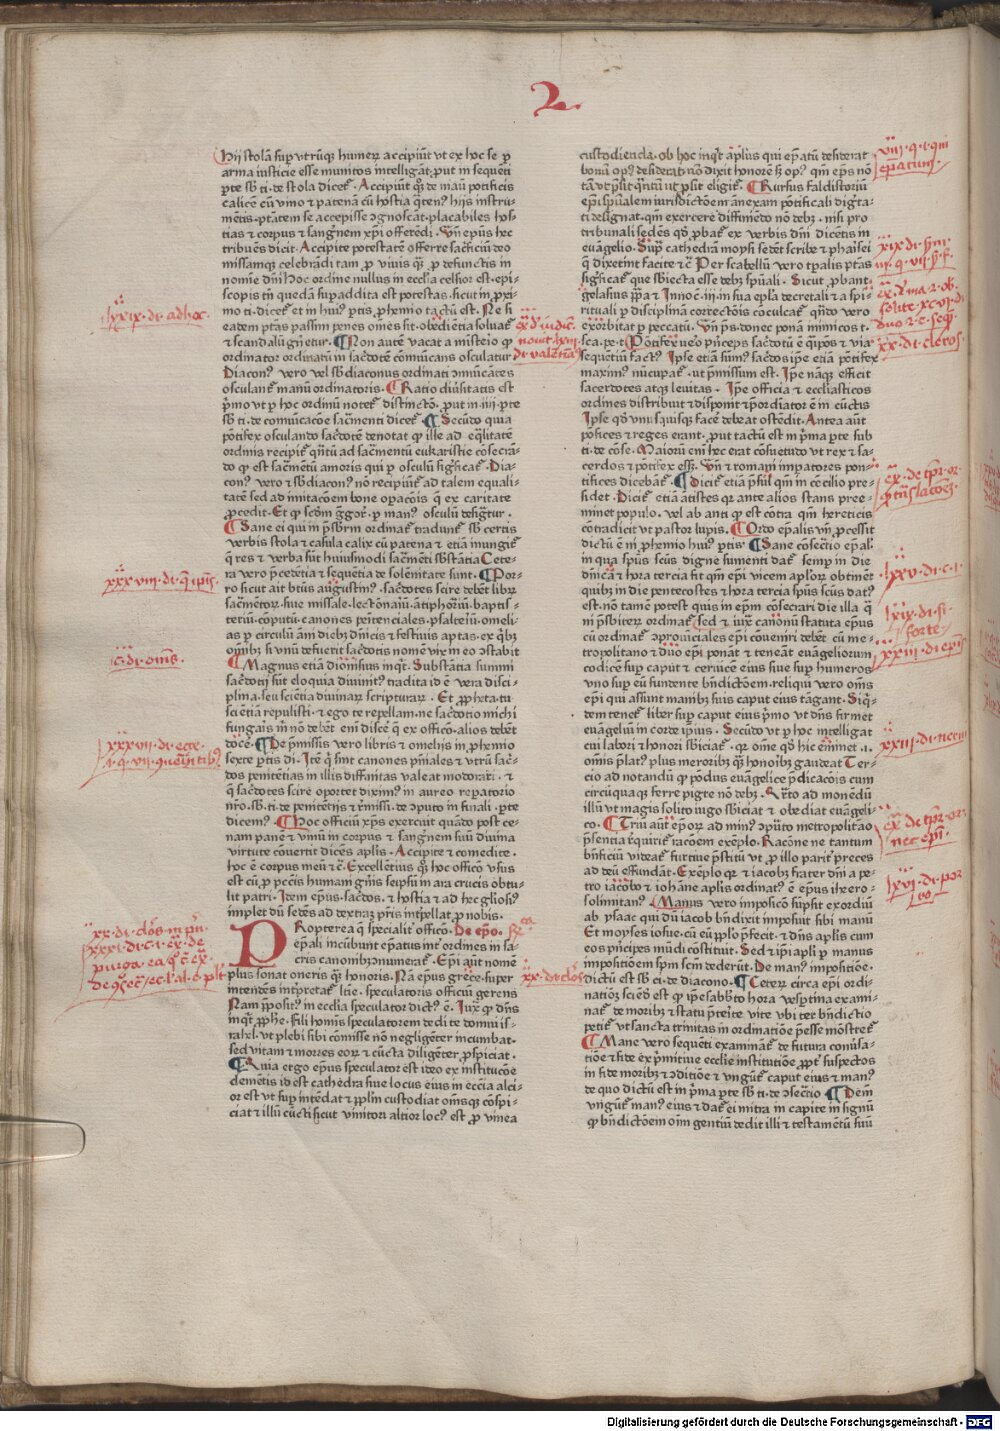 2.
Hij stolã sup vtrũqꝫ humeꝝ accipiũt vt ex hoc se ꝑ
arma iusticie esse munitos intelligant. put in sequẽti
ꝑte sb̃ ti. de stola dicet᷑. Accipiũt qꝫ de manu põtificis
calicẽ cũ vino ⁊ patenã cũ hostia
mẽtis ptãtem se accepisse ꝯgnoscãt. placabiles hos
tias ⁊ corpus ⁊ sanguinem xp̃i offerẽdi. Vñ ep̃us hec
tribuẽs dicit. Accipite potestatẽ offerre sacrificiũ deo
missamqꝫ celebrãdi tam ꝓ viuis qꝫ ꝓ defunctis in
nomine dñi Hoc ordine nullus in ecclia celsior est. epi
scopis tñ quedã supaddita est potestas. sicut in ꝓxi
mo ti. dicet᷑ et in huiꝰ ꝑtis ꝓhemio tactũ est. Ne si
eadem ptãs passim penes om̃es sit. obediẽtia soluat᷑
⁊ scandalũ gñetur. Non autẽ vacat a misterio
ordinator ordinatũ in sacerdotẽ cõmunicans osculatur
Diaconꝰ vero vel sb̃diaconus ordinati ꝯmunicãtes
osculant᷑ manũ ordinatoris. Ratio diuersitatis est
p̃mo vt ꝑ hoc ordinũ notet᷑ distinctio. ꝓut in iiij ꝑte
sb̃ ti. de comunicacõe sacramenti dicet᷑. Secũdo quia
põtifex osculando sacerdotẽ denotat ꝙ ille ad eqlitatẽ
ordinis recipit᷑ quãtũ ad sacramẽtũ eukaristie cõsecrã
do ꝙ est sacramẽtũ amoris qui ꝑ osculũ significat᷑. Dia
conꝰ vero ⁊ sb̃diaconꝰ nõ recipiũt᷑ ad talem equali
tatẽ sed ad imitacõem bone opacõis q̃ ex caritate
ꝓcedit. Et ꝙ scd̃m gregoꝝ. ꝑ manꝰ osculũ designatur.
Sane ei qui in presbiterum ordinat᷑ tradunt᷑ sb̃ certis
verbis stola ⁊ casula calix cũ patena ⁊ etiã inungit᷑
q̃ res ⁊ verba sũt huiusmodi sacramẽti sb̃stãtia Cete
ra vero p̃cedẽtia ⁊ sequẽtia de solẽnitate sunt. Por
ro sicut ait btũs augustinꝰ. sacerdotes scire debẽt libꝝ
sacramẽtoꝝ. siue missale. lectionariũ. antiphonariũ. baptis
teriũ. cõputũ. canones penitenciales. psalteriũ. omeli
as ꝑ circulũ anni diebꝫ dñicis ⁊ festiuis aptas. ex qbꝫ
omibꝫ si vnũ defuerit sacerdotis nomẽ vix in eo ꝯstabit
Magnus etiã dionisius inqt᷑. Substãtia summi
sacerdotij sũt eloquia diuinitꝰ tradita id ẽ vera disci
plina. seu sciẽtia diuinaꝝ scripturaꝝ. Et ꝓpheta. tu
scientiã repulisti. ⁊ ego te repellam. ne sacerdotio michi
fungaris in nõ debẽt eni discẽ q̃ ex officio. alios debẽt
docẽ. De p̃missis vero libris ⁊ omelijs in ꝓhemio
sexte ꝑtis di. Itẽ q̃ sint canones pñiales ⁊ vtrũ sacer
dos penitẽtias in illis diffinitas valeat moderari. ⁊
q̃ sacerdotes scire oportet diximꝰ in aureo reptorio
nr̃o. sb̃. ti. de penitẽtijs ⁊ remiss. de ꝯputo in finali. ꝑte
dicemꝰ. Hoc officiũ xp̃s exercuit quãdo post ce
nam panẽ ⁊ vinũ in corpus ⁊ sanguinem suũ diuina
virtute cõuertit dicẽs aplis. Accipite ⁊ comedite.
hoc ẽ corpus meũ ⁊c̃. Excellẽtius qꝫ hoc officio vsus
est cũ ꝓ pcc̃is humani gñis seipsũ in ara crucis obtu
lit patri. Item ep̃us. sacerdos. ⁊ hostia ⁊ ad hec gliosiꝰ
implet dũ sedẽs ad dextrã p̃ris interpellat ꝓ nobis.
PRopterea q̃ specialit᷑ officio. De epo.
ep̃ali incũbunt ep̃atus int᷑ ordines in sa
cris canonibꝫ ꝯnumerat᷑. Ep̃i aũt nomẽ
plus sonat oneris qꝫ honoris. Nã ep̃us grece. super
intendẽs interpretat᷑ latine. speculatoris officiũ gerens
Nam p̃positꝰ in ecclia speculator dictꝰ ẽ. Iuxta ꝙ dñs
inqt᷑ ꝓphe. Fili hominis speculatorem dedi te domui is
rahel. vt plebi sibi cõmisse nõ negligẽter incumbat.
sed vitam ⁊ mores eoꝝ ⁊ cũcta diligẽter ꝓspiciat.
Quia ergo ep̃us speculator est ideo ex institucõe
clemẽtis id est cathedra siue locus eius in ecc̃ia alci
or est vt sup intẽdat ⁊ pplm custodiat om̃sqꝫ cõspi
ciat ⁊ illũ custodit sicut vinitori altior locꝰ est ꝓ vinea
custodienda. ob hoc inqt ap̃lus qui ep̃atũ desiderat
bonũ opꝰ desiderat nõ dixit honorẽ sꝫ opꝰ qm̃ ep̃s nõ
tã vt p̃sit q̃tũ vt ꝓsit eligit᷑. Rursus faldistoriũ
ep̃i spũalem iurisdictõem anexam põtificali digita
ti designat. qm̃ exercere diffiniẽdo nõ debꝫ. nisi pro
tribunali sedẽs qđ ꝓbat᷑ ex verbis dñi dicẽtis in
euãgelio. Sup cathedrã moysi sedẽt scribe ⁊ pharisei
q̃ dixerint facite ⁊c̃ Per scabellũ vero tp̃alis ptãs
significat᷑ que sbiecta esse debꝫ spũali. Sicut ꝓbant.
gelasius papa ⁊ Innoc̃. iij. in sua ep̃la decretali ⁊ a spi
rituali ꝑ disciplinã correctiõis cõculcat᷑ qñdo vero
exorbitat ꝑ peccatũ. Vñ ps. donec ponã inimicos t.
sca. pe. t. Põtifex uero p̃nceps sacerdotũ ẽ q̃ipos ⁊ via
sequẽtiũ fact᷑. Ipse etiã sũmꝰ sacerdos ipe etiã põtifex
maximꝰ nũcupat᷑. vt p̃missum est. Ipe nãqꝫ efficit
sacerdotes atqꝫ leuitas. Ipe officia ⁊ eccliasticos
ordines distribuit ⁊ disponit ⁊ p̃ordiator ẽ in cũctis
Ipse qđ vnusquisqꝫ facẽ debeat ostẽdit. Antea aũt
põtifices ⁊ reges erant. ꝓut tactũ est in p̃ma ꝑte sub
ti. de cõse. Maioꝝ eni hec erat cõsuetudo vt rex ⁊ sa
cerdos ⁊ põtifex esset. Vñ ⁊ romani impatores pon
tifices dicebãt᷑. Dicit᷑ etiã p̃sul qm̃ in cõcilio pre
sidet. Dicit᷑ etiã ãtistes qꝛ ante alios stans pree
minet populo. vel ab anti ꝙ est cõtra qm̃ hereticis
cõtradicit vt pastor lupis. Ordo ep̃alis vñ ꝓcessit
dictũ ẽ in ꝓhemio huiꝰ ꝑtis. Sane cõsecratio ep̃al
in qua spũs scũs digne sumenti dat᷑ semp in die
dñica ⁊ hora tercia fit qm̃ ep̃i vicem ap̃loꝝ obtinẽt
quibꝫ in die pentecostes ⁊ hora tercia spũs scũs datꝰ
est. nõ tamẽ potest quis in epm̃ cõsecrari die illa q̃
in p̃sbiteꝝ ordinat᷑ sed ⁊ iux̃ canonũ statuta ep̃us
cũ ordinat᷑ ꝯprouinciales ep̃i cõuenire debẽt cũ me
tropolitano ⁊ duo ep̃i ponãt ⁊ teneãt euangeliorum
codicẽ sup caput ⁊ ceruicẽ eius siue sup humeros
vno sup eũ fundente bñdictõem. reliqui vero om̃s
ep̃i qui assunt manibꝫ suis caput eius tãgant. Siq
dem tenet᷑ liber sup caput eius p̃mo vt dñs firmet
euãgeliũ in corde ipsius. Secũdo vt ꝑ hoc intelligat
cui labori ⁊ honori sbiciat᷑. qꝛ om̃e qđ hic em̃inet .i.
om̃is p̃latꝰ plus meroribꝫ qꝫ honoribꝫ gaudeat Ter
cio ad notandũ ꝙ põdus euãgelice p̃dicacõis cum
circũquaqꝫ ferre pigre nõ debꝫ. Qrto ad monẽdũ
illũ vt magis solito iugo sbiciat ⁊ obediat euangeli
co. Triũ aũt ep̃oꝝ ad minꝰ ꝯputo metropolitão
p̃sentia requirit᷑ racõem exẽplo. Racõne ne tantum
bñficiũ videat᷑ furtiue p̃stitũ vt ꝓ illo parit᷑ preces
ad deũ effundãt᷑. Exẽplo qꝛ ⁊ iacobꝫ frater dñi a pe
tro iacobo ⁊ iohãne aplis ordinatꝰ ẽ ep̃us ihero
solimitanꝰ. Manus vero imposicõ sũpsit exordiũ
ab ysaac qui dũ iacob bñdixit imposuit sibi manũ
Et moyses iosue. cũ eũ pplo p̃fecit. ⁊ dñs aplis cum
eos prĩcipes mũdi cõstituit. Sed ⁊ ipsi apli ꝑ manus
impositiõem spm̃ scm̃ dederũt. De manꝰ impositiõe.
dictũ est sb̃ ti. de diacono. Ceteꝝ circa epi ordi
natioẽꝫ sciẽdũ est ꝙ ipe sabbto hora vesp̃tina exami
nat᷑ de moribꝫ ⁊ statu p̃terite vite vbi ter bñdictio
petit᷑ vt sancta trinitas in ordinatiõe p̃esse mõstret᷑
Mane vero sequẽti examinat᷑ de futura conũsa
tiõe ⁊ fide ex p̃mitiue ecclie institutiõe ꝓpt᷑ suspectos
in fide moribꝫ ⁊ ꝯditiõe ⁊ vngũt᷑ caput eius ⁊ manꝰ
de quo dictũ est in p̃ma ꝑte sb̃ ti. de ꝯsectio Dem
vngũt᷑ manꝰ eius ⁊ dat᷑ ei mitra in capite in signũ
ꝙ bñdictõem om̃ gentiũ dedit illi ⁊ testamẽtũ suũ
lxxix. di. ad hoc.
xxxviij. di. q̃ ipis.
.c. di. om̃s.
xxxvii. di. ecce.
xx. di. cleros.
viij. q. i. qui
ep̃atum.
xx. di. cleros
lxxv. di. c. i.
lxix. di. si
forte
xxiij. di. ep̃us
xxiij. di. ticem
ex̃ de tp̃r. or.
nec epi.
lxvi. di. por
ro
Digitalisierung gefördert durch die Deutsche Forschungsgemeinschaft - DFG